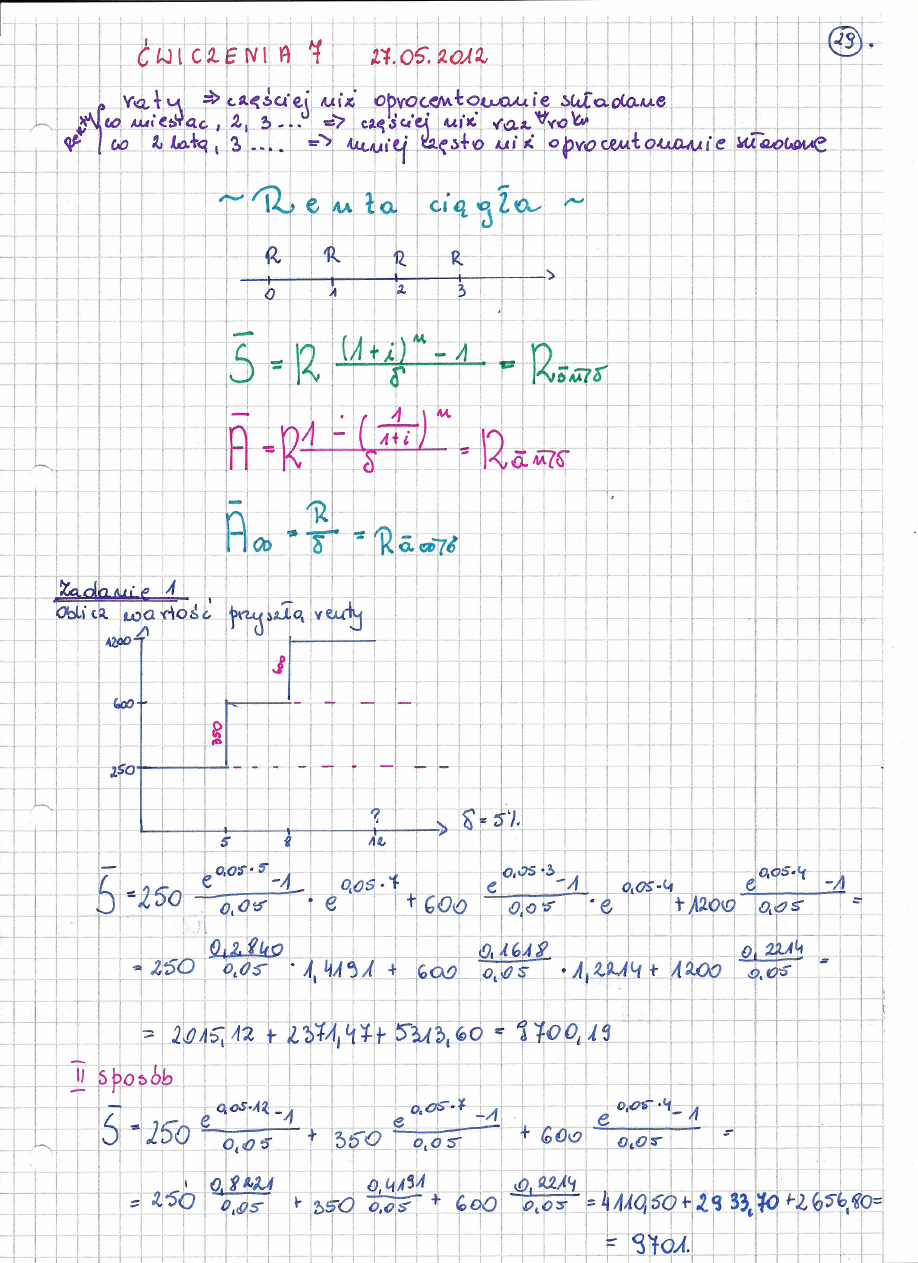 29.
ĆWICZENIA 7 27.05.2012
raty => częściej niż oprocentowanie składane
Renty co miesiąc, 2, 3... => częściej niż raz w roku
co 2 lata, 3.... => mniej często niż oprocentowanie składane
~ Renta ciągła ~
R R R R
0 1 2 3
S̄ = R ((1+i)^n - 1)/δ = R s̄ n̅| δ
Ā = R (1 - (1/(1+i))^n)/δ = R ā n̅| δ
Ā∞ = R/δ = R ā ∞̅| δ
Zadanie 1
Oblicz wartość przyszłą renty
1200
600
600
350
250
? δ = 5%.
5 8 12
S̄ = 250 (e^(0,05·5) - 1)/0,05 · e^(0,05·7) + 600 (e^(0,05·3) - 1)/0,05 · e^(0,05·4) + 1200 (e^(0,05·4) - 1)/0,05 =
= 250 0,2840/0,05 · 1,4191 + 600 0,1618/0,05 · 1,2214 + 1200 0,2214/0,05 =
= 2015,12 + 2371,47 + 5313,60 = 9700,19
II sposób
S̄ = 250 (e^(0,05·12) - 1)/0,05 + 350 (e^(0,05·7) - 1)/0,05 + 600 (e^(0,05·4) - 1)/0,05 =
= 250 0,8221/0,05 + 350 0,4191/0,05 + 600 0,2214/0,05 = 4110,50 + 2933,70 + 2656,80 =
= 9701.